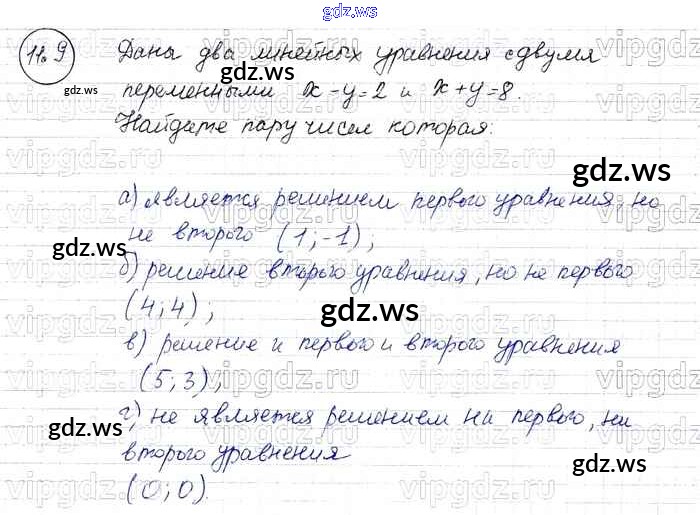 gdz.ws
11.9 Даны два линейных уравнения с двумя
переменными x-y=2 и x+y=8.
Найдите пару чисел которая:
а) является решением первого уравнения, но
не второго (1;-1);
б) решение второго уравнения, но не первого
(4;4);
в) решение и первого и второго уравнения
(5;3);
г) не является решением ни первого, ни
второго уравнения
(0;0).
gdz.ws
gdz.ws
gdz.ws
gdz.ws
gdz.ws
gdz.ws
gdz.ws
gdz.ws
gdz.ws
vipgdz.ru